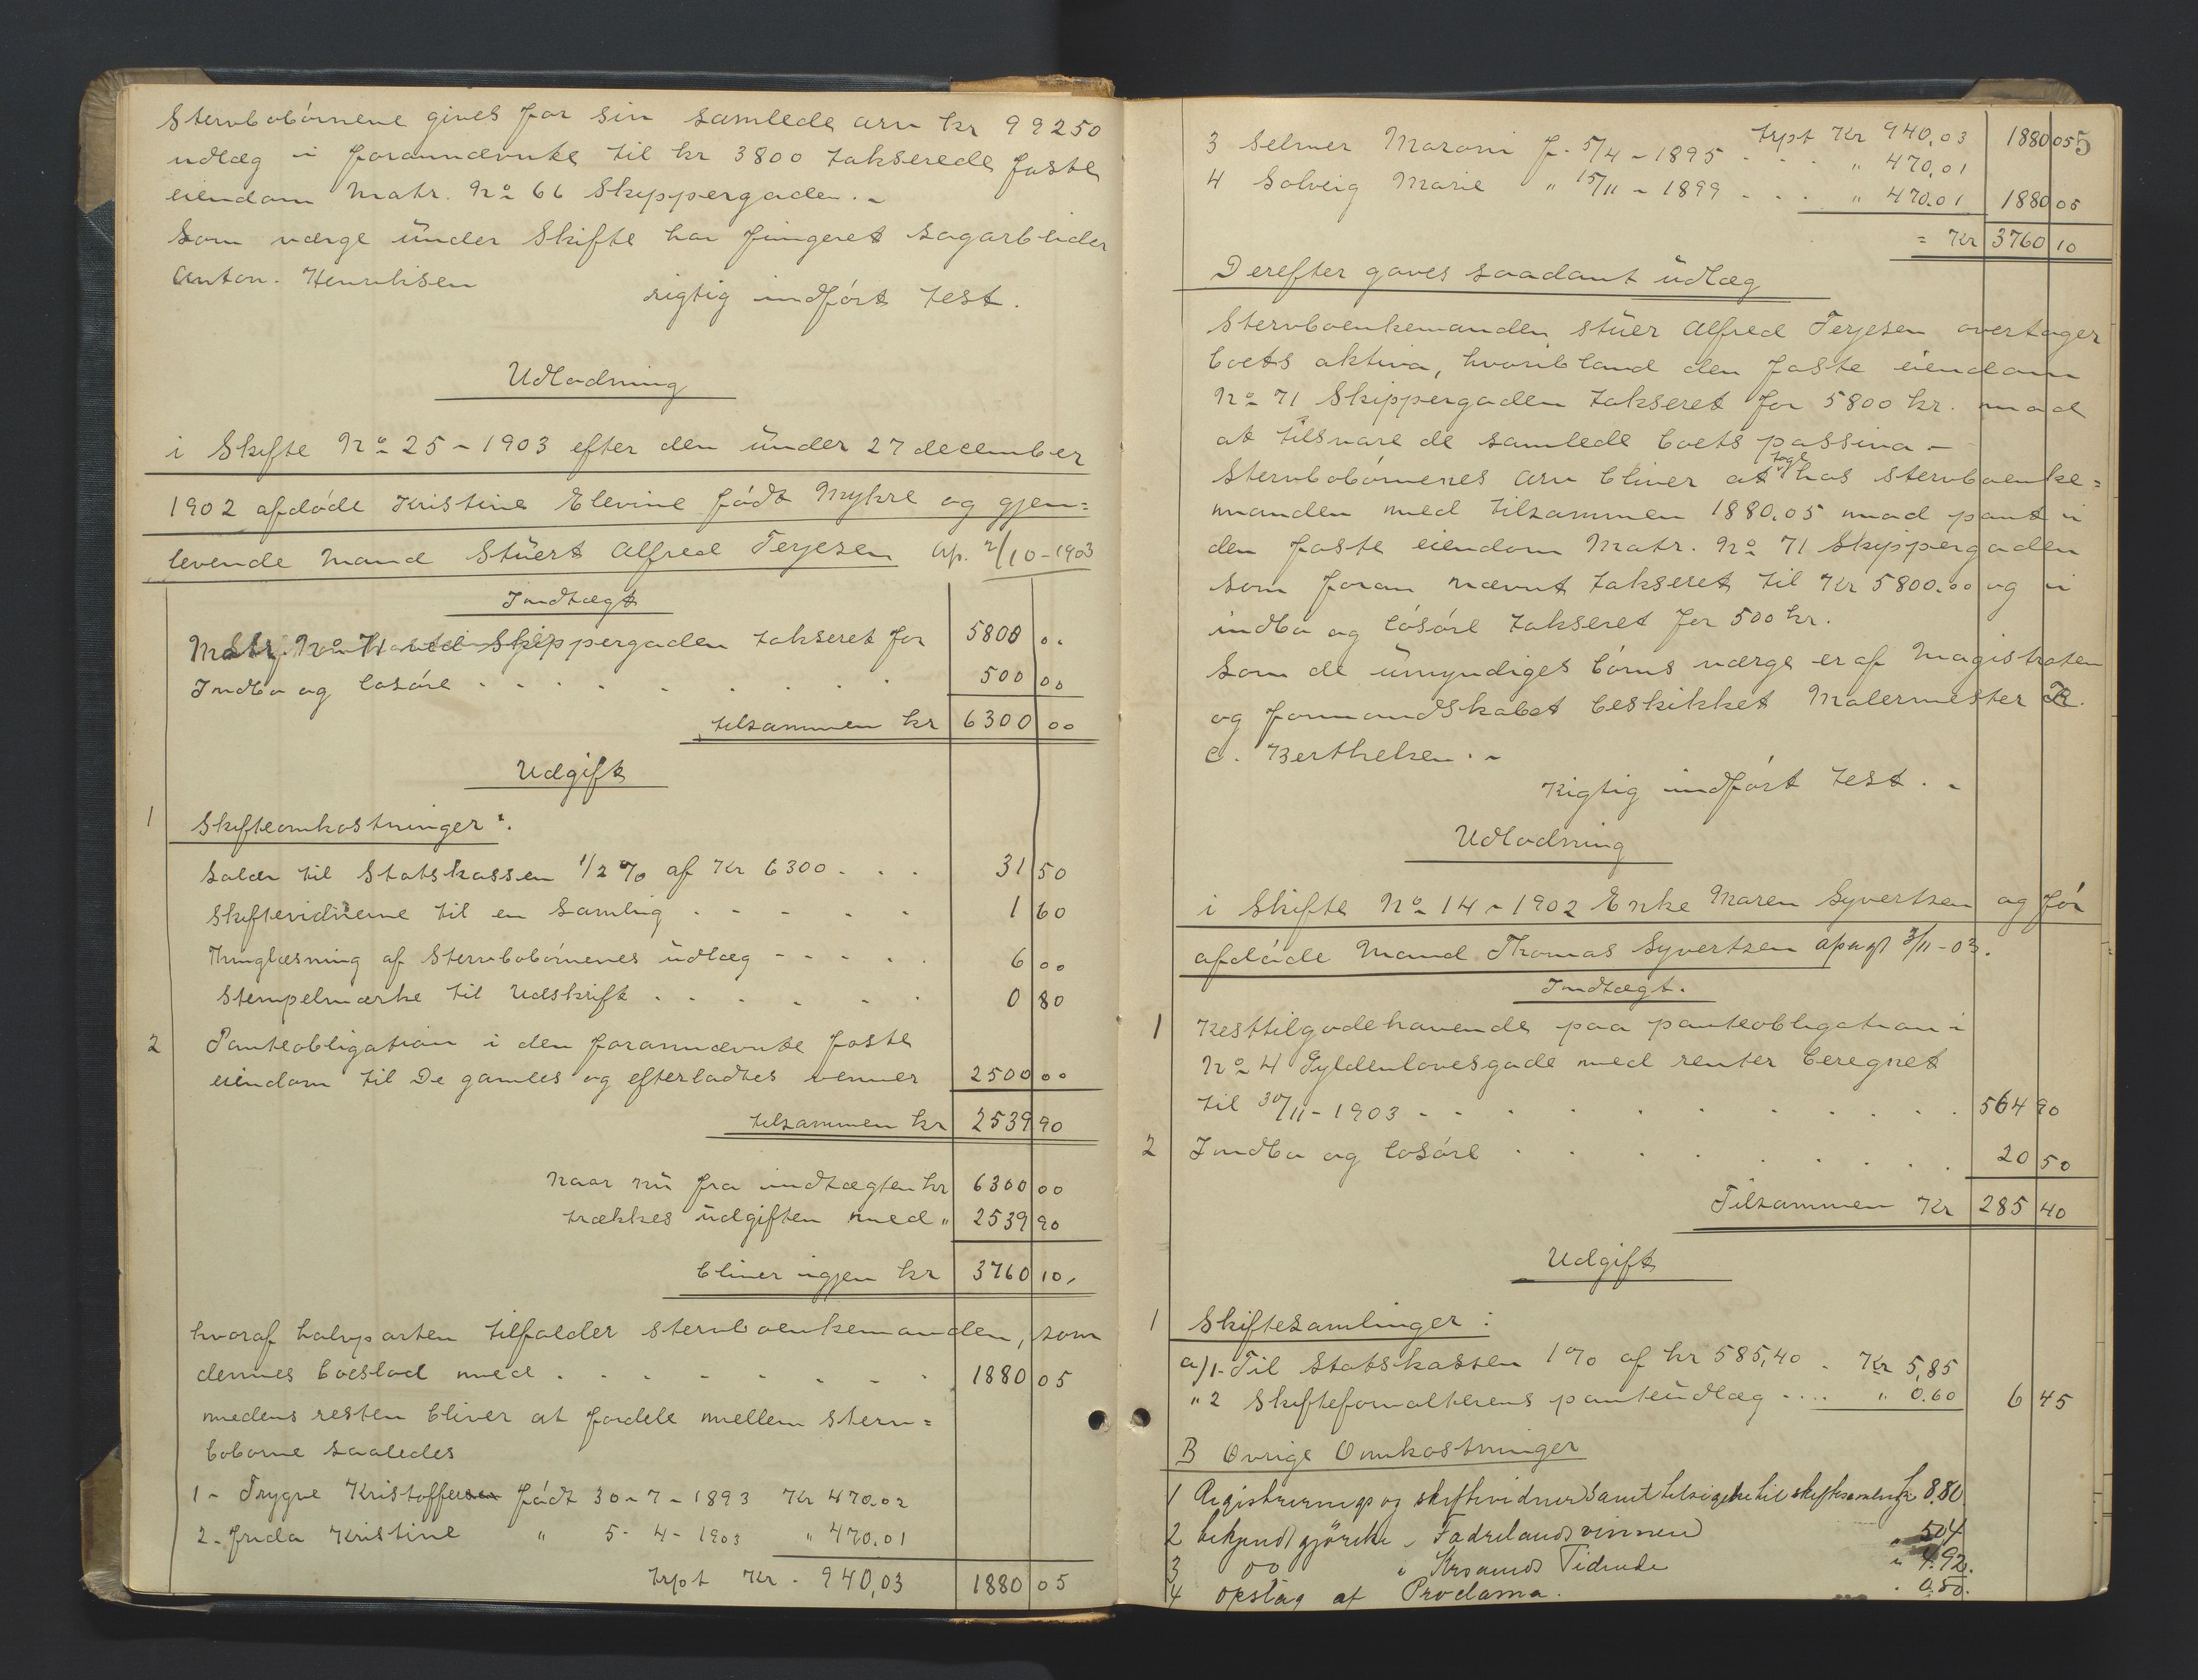 Stervbobörnene gives for sin samlede arv kr 99250
udlæg i forannævnte til kr 3800 takserede faste
eiendom Matr. No 66 Skippergaden. -
Som værge under Skifte har fungeret sagarbeider
Anton. Henriksen rigtig indført test.
Udlodning
i Skifte No 25 - 1903 efter den under 27 december
1902 afdöde Kristine Elevine födt Mykre og gjen=
levende Mand Stuert Alfred Terjesen Ap. 2/10 - 1903
Indtægt
Matr. No 71 Skippergaden takseret for 5800 00
Indbo og løsöre . . . . . . . . 500 00
tilsammen kr 6300 00
Udgift
1 Skifteomkostninger:
Salær til Statskassen 1/2 % af Kr 6300 . . . 31 50
Skiftevidnerne til en Samling . - - - . 1 60
Thinglæsning af Stervbobörnenes udlæg - - - . . 6 00
Stempelmærke til Udskrift . . . . . . 0 80
2 Panteobligation i den forannævnte faste
eiendom til De gamles og efterladtes venner 2500 00
tilsammen kr 2539 90
Naar nu fra indtægten kr 6300 00
trækkes udgiften med " 2539 90
bliver igjen kr 3760 10.
hvoraf halvparten tilfalder stervboenkemanden, som
dennes boeslod med . . . . . . . . . 1880 05
medens resten bliver at fordele mellem sterv=
boborne saaledes
1 - Trygve Kristoffer födt 30 - 7 - 1893 Kr 470.02
2 - Frida Kristine " 5 - 4 - 1903 " 470.01
trpt Kr - 940,03 1880 05
5
trpt Kr 940,03 1880 05
3 Selmer Maroni f. 5/4 - 1895 . . . " 470,01
4 Solveig Marie " 15/11 - 1899 . . . " 470.01 1880 05
= Kr 3760 10
Derefter gaves saadant udlæg
Stervboenkemanden stuer Alfred Terjesen overtager
boets aktiva, hvoribland den faste eiendom
No 71 Skippergaden takseret for 5800 kr. mod
at tilsvare de samlede boets passiva -
Stervbobörnenes arv bliver at hos stervboenke=
manden med tilsammen 1880.05 mod pant i
den faste eiendom Matr. No 71 Skippergaden
som foran nævnt takseret til Kr 5800.00 og i
indbo og løsöre takseret for 500 kr.
Som de umyndiges börns værge er af Magistraten
og formandskabet beskikket Malermester
C. Berthelsen. -
Rigtig indført test. -
Udlodning
i Skifte No 14 - 1902 Enke Maren Syvertsen og för
afdöde Mand Thomas Syvertsen 3/11 - 03.
Indtægt.
1 Resttilgodehavende paa panteobligation i
No 4 Gyldenlovesgade med renter beregnet
til 30/11 - 1903 - - . . . . . . . . 564 90
2 Indbo og løsöre . . . . . . . . 20 50
Tilsammen Kr 285 40
Udgift
1 Skiftesamlinger:
a/1. Til Statskassen 1 % af kr 585,40 . Kr 5,85
" 2 Skifteforvalterens panteudlæg .... " 0.60 6 45
B Øvrige Omkostninger
1 Registrerings og skiftevidner samt tilsigelse til skiftesamling kr 8.80
2 bekjendtgjörelse i Fædrelandsvennen " 504
3 do i Krsands Tidende " 4.92.
4 opslag af Proclama. . 0.50.